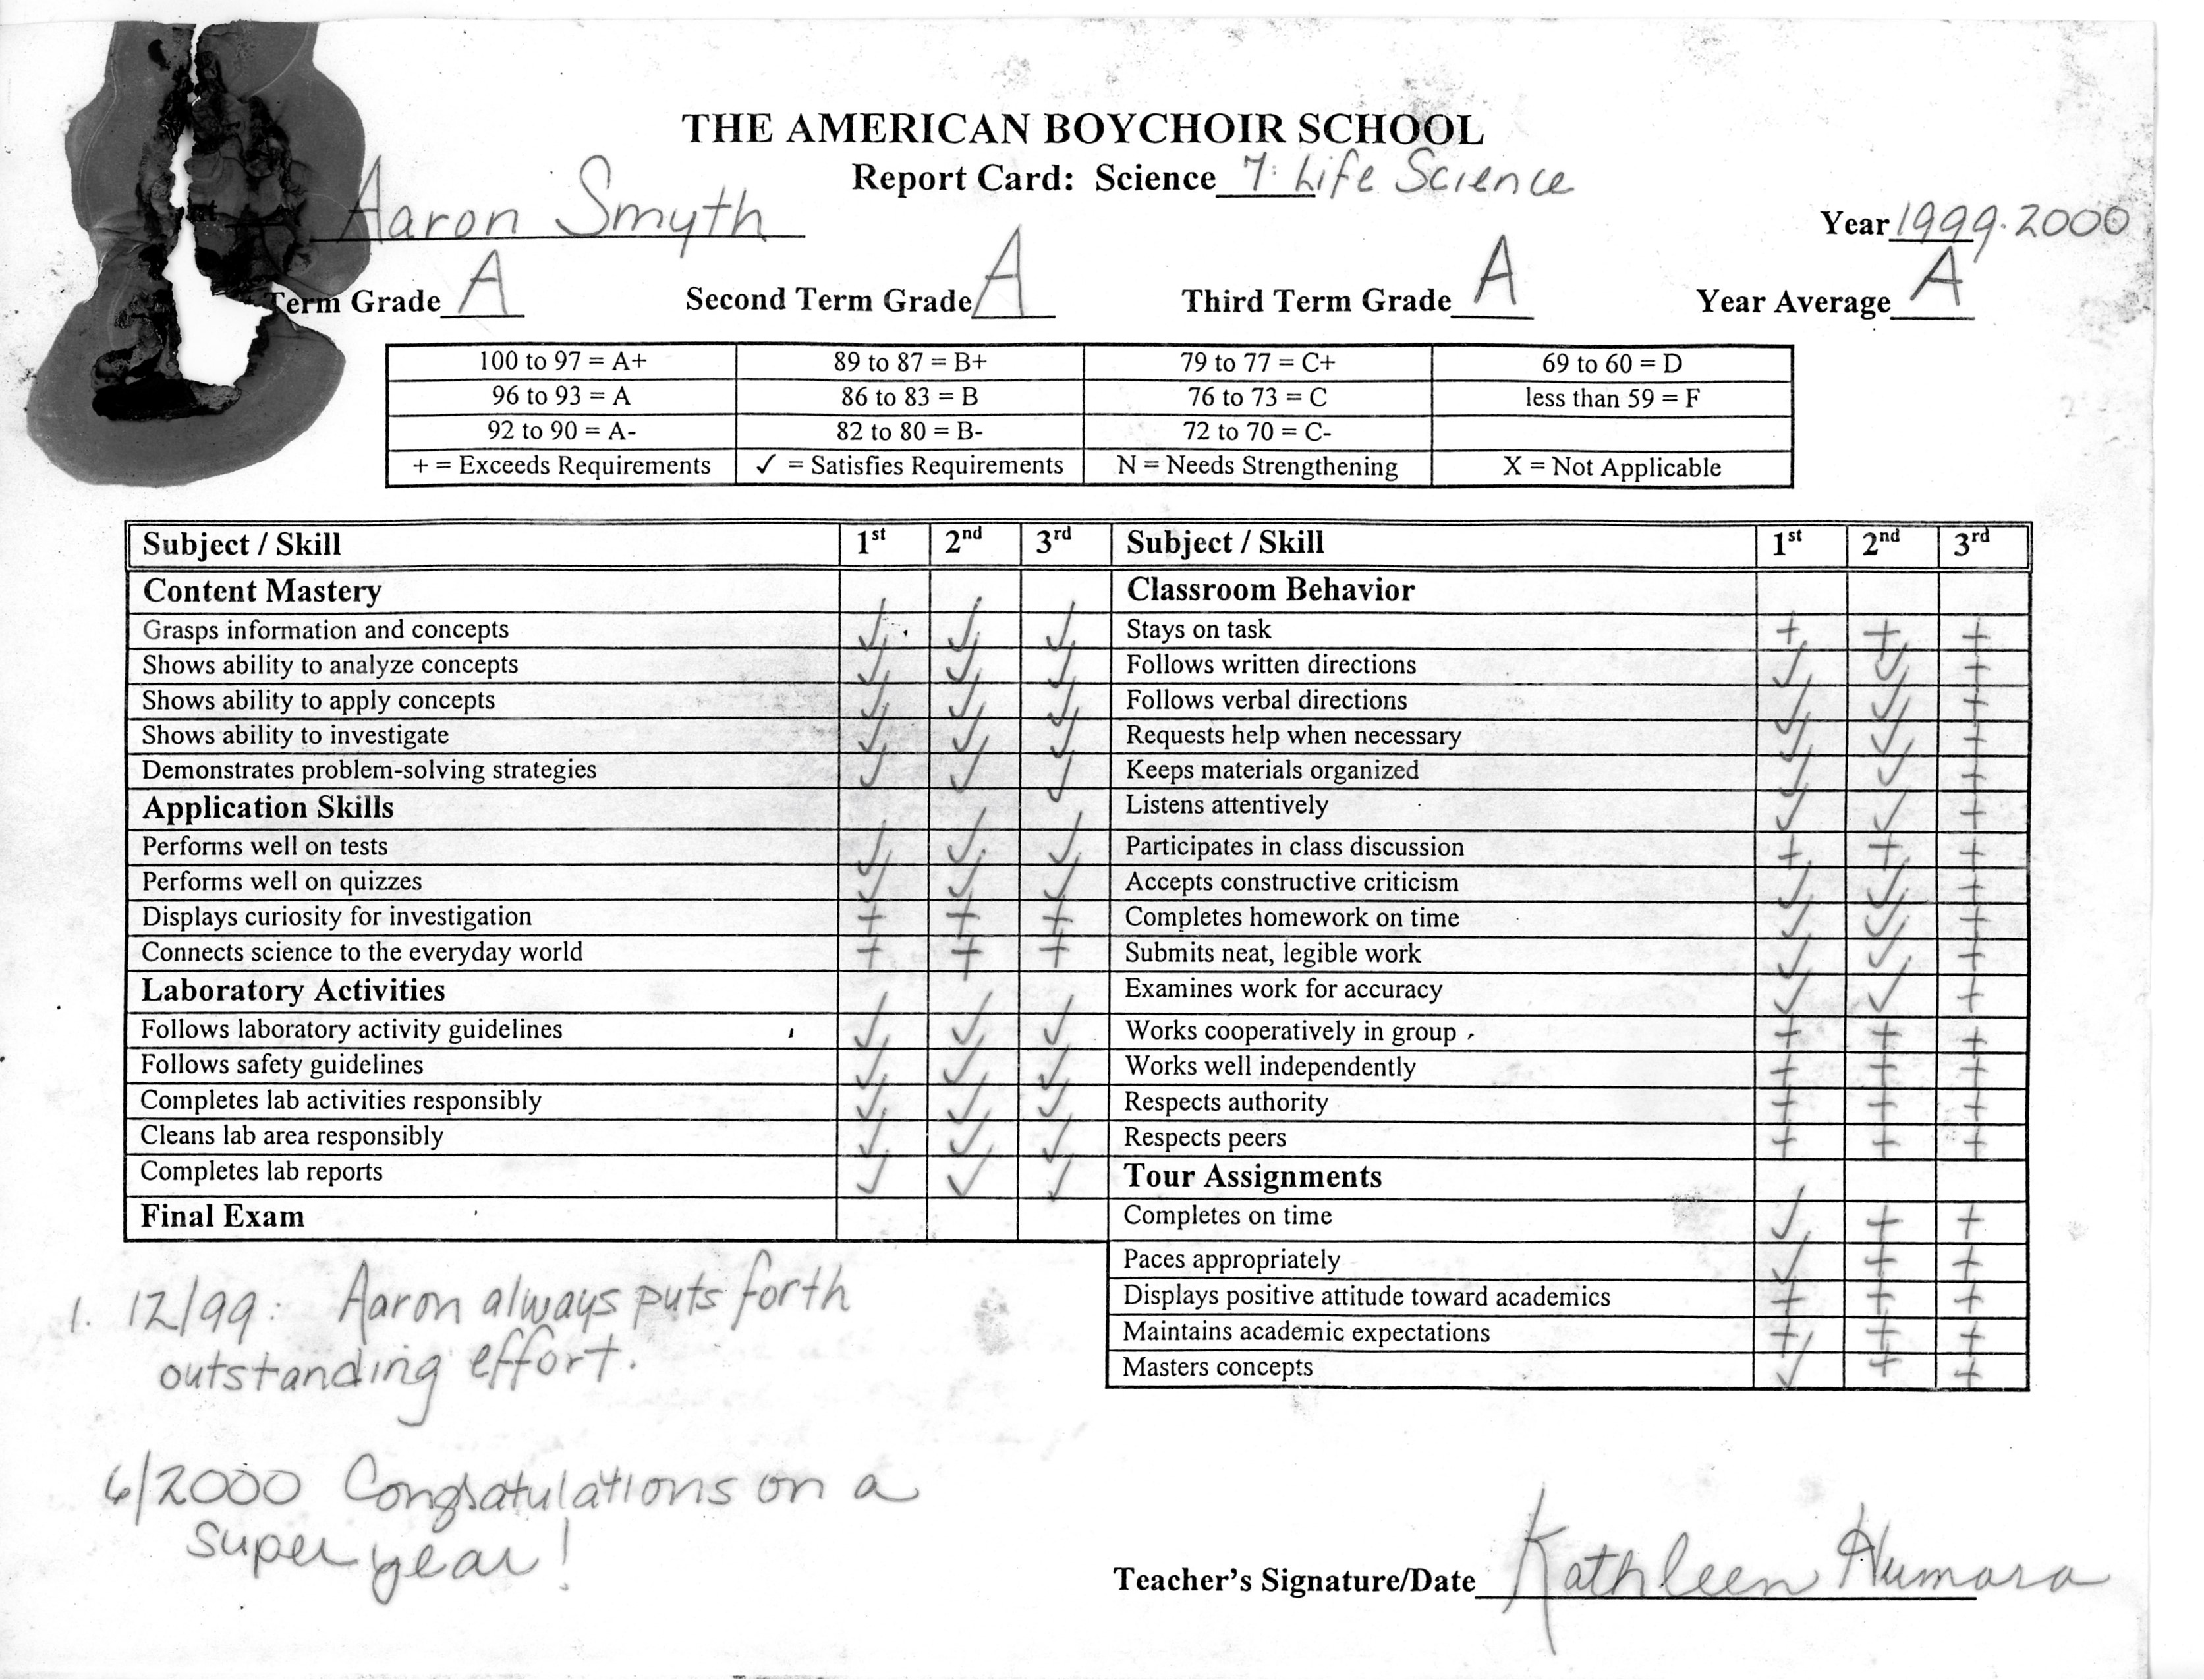 THE AMERICAN BOYCHOIR SCHOOL
Report Card: Science 7: Life Science
Aaron Smyth
Year 1999-2000
Term Grade A Second Term Grade A Third Term Grade A Year Average A
100 to 97 = A+ 89 to 87 = B+ 79 to 77 = C+ 69 to 60 = D
96 to 93 = A 86 to 83 = B 76 to 73 = C less than 59 = F
92 to 90 = A- 82 to 80 = B- 72 to 70 = C-
+ = Exceeds Requirements ✓ = Satisfies Requirements N = Needs Strengthening X = Not Applicable
Subject / Skill 1st 2nd 3rd Subject / Skill 1st 2nd 3rd
Content Mastery Classroom Behavior
Grasps information and concepts ✓ ✓ ✓ Stays on task + + +
Shows ability to analyze concepts ✓ ✓ ✓ Follows written directions ✓ ✓ +
Shows ability to apply concepts ✓ ✓ ✓ Follows verbal directions ✓ ✓ +
Shows ability to investigate ✓ ✓ ✓ Requests help when necessary ✓ ✓ +
Demonstrates problem-solving strategies ✓ ✓ ✓ Keeps materials organized ✓ ✓ +
Application Skills Listens attentively ✓ ✓ +
Performs well on tests ✓ ✓ ✓ Participates in class discussion + + +
Performs well on quizzes ✓ ✓ ✓ Accepts constructive criticism ✓ ✓ +
Displays curiosity for investigation + + + Completes homework on time ✓ ✓ +
Connects science to the everyday world + + + Submits neat, legible work ✓ ✓ +
Laboratory Activities Examines work for accuracy ✓ ✓ +
Follows laboratory activity guidelines ✓ ✓ ✓ Works cooperatively in group + + +
Follows safety guidelines ✓ ✓ ✓ Works well independently + + +
Completes lab activities responsibly ✓ ✓ ✓ Respects authority + + +
Cleans lab area responsibly ✓ ✓ ✓ Respects peers + + +
Completes lab reports ✓ ✓ ✓ Tour Assignments
Final Exam Completes on time ✓ + +
Paces appropriately ✓ + +
Displays positive attitude toward academics + + +
Maintains academic expectations + + +
Masters concepts ✓ + +
1. 12/99: Aaron always puts forth
outstanding effort.
6/2000 Congratulations on a
super year!
Teacher's Signature/Date Kathleen Humora